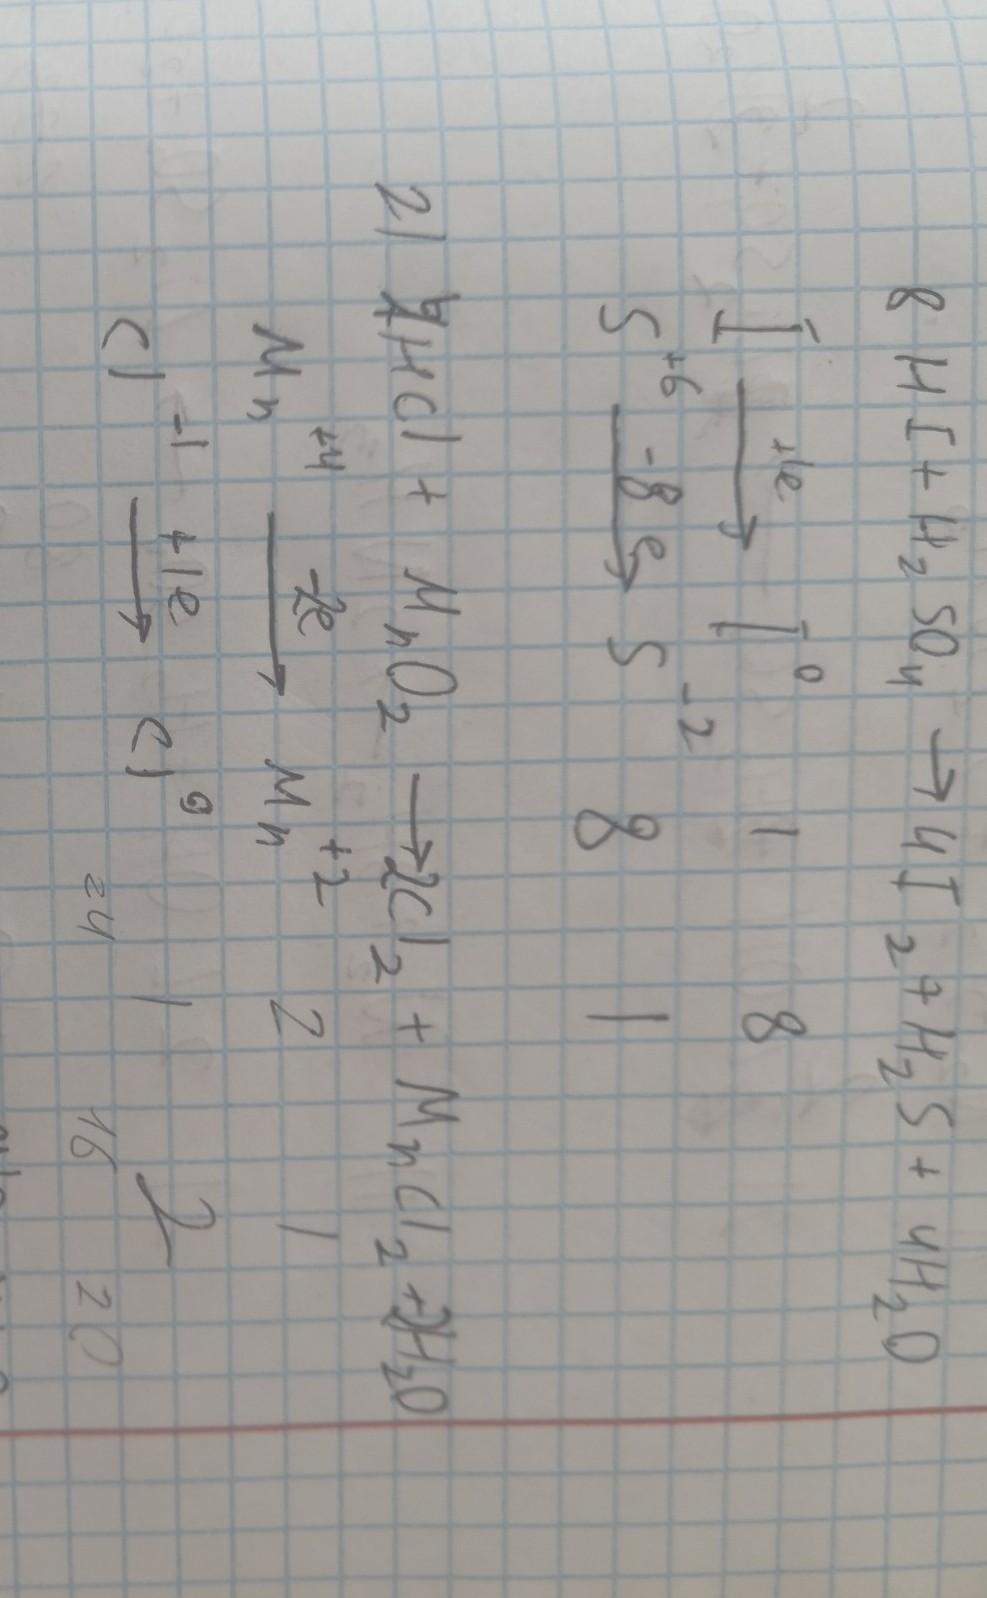 8 HI + H₂SO₄ → 4I₂ + H₂S + 4H₂O
I⁻ +1e → I⁰ 1 8
S⁺⁶ -8e → S⁻² 8 1
2) 4HCl + MnO₂ → 2Cl₂ + MnCl₂ + 2H₂O
Mn⁺⁴ -2e → Mn⁺² 2 1
Cl⁻¹ +1e → Cl⁰ 1 2
24 16 20